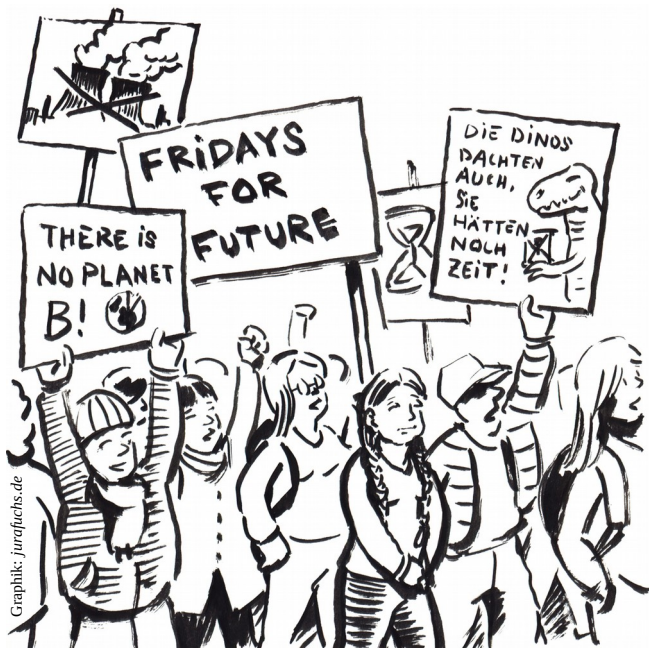 FRiDAYS
FOR
FUTURE
THERE iS
NO PLANET
B!
DiE DiNOS
DACHTEN
AUCH,
SiE
HÄTTEN
NOCH
ZEiT!
Graphik: jurafuchs.de